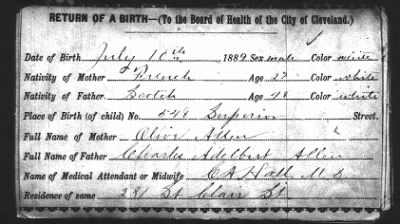 RETURN OF A BIRTH—(To the Board of Health of the City of Cleveland.)
Date of Birth July 10th 1889 Sex male Color white
Nativity of Mother French Age 27 Color white
Nativity of Father Scotch Age 48 Color white
Place of Birth (of child) No. 549 Superior Street.
Full Name of Mother Olive Allen
Full Name of Father Charles Adelbert Allen
Name of Medical Attendant or Midwife C A Hall M.D.
Residence of same 281 St Clair St